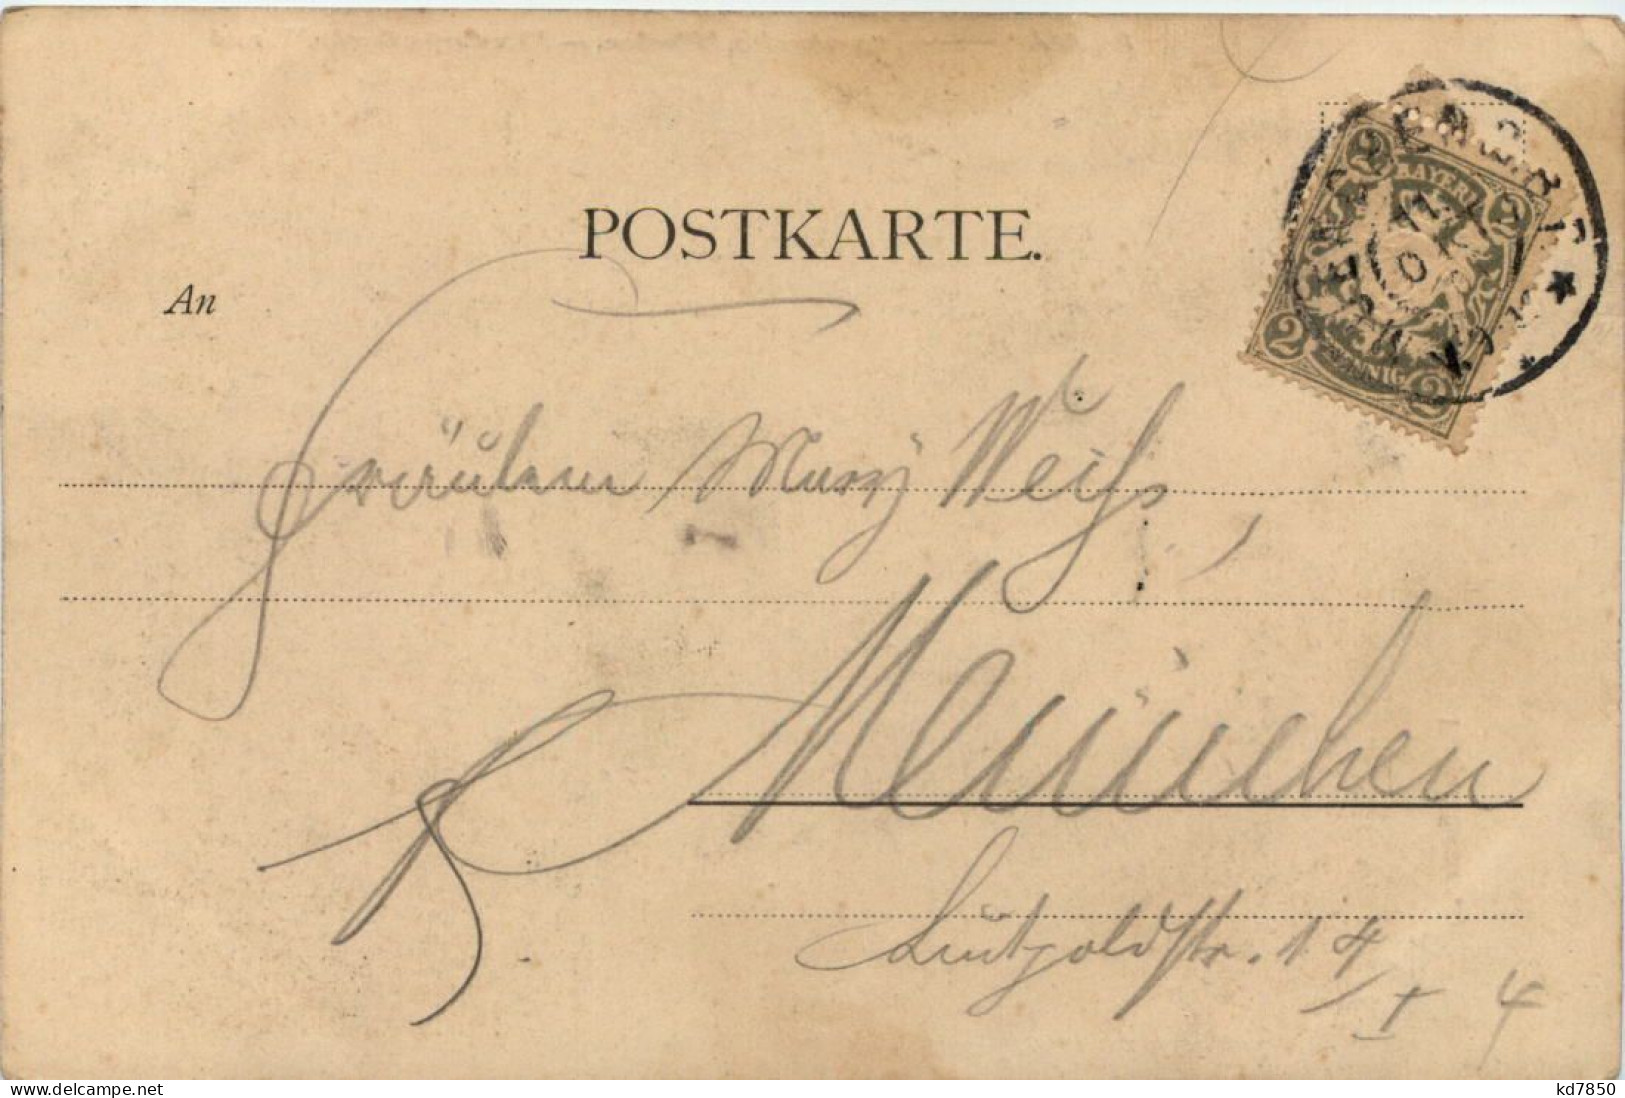 POSTKARTE.
An
2 BAYERN 2
2 PFENNIG 2
Fräulein Mary Weiß,
München
Luitpoldstr. 14/I
4
delcampe.net
kd7850